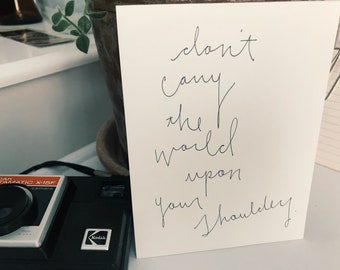 don't
carry
the
world
upon
your shoulders.
DAK
TAMATIC X-15F
Kodak